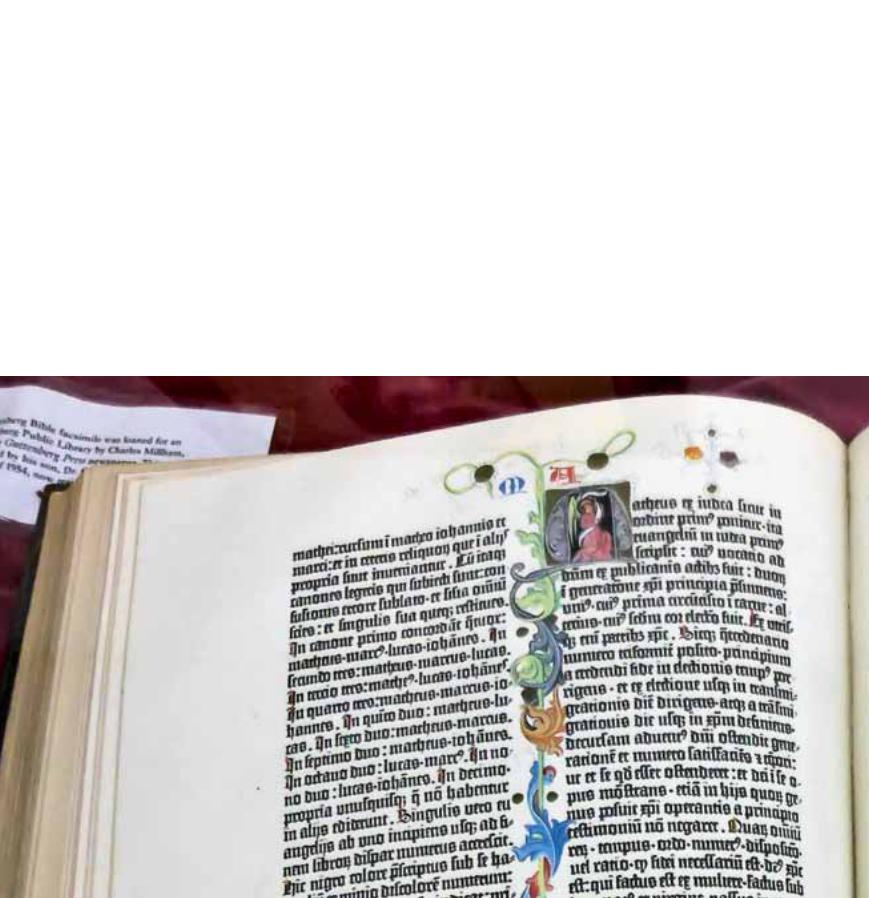 nberg Bible facsimile was loaned for an
berg Public Library by Charles Millham,
Guttenberg Press newspaper.
d by his son, Dr.
f 1954, now
M A
mathei: rursum ī matheo iohannis et
marci: et in ceteris reliquoꝝ que ī alijs
propria sunt inueniantur. Cū itaqꝫ
canones legeris qui subiecti sunt: con
fusionis errore sublato: et silia oīniū
scies: et singulis sua queqꝫ restitues.
In canone primo concordāt q̄tuor:
matheus·marc⁹·lucas·iohānes. In
secundo tres: matheus·marcus·lucas.
In tercio tres: mathe⁹·lucas·iohānes.
In quarto tres: matheus·marcus·io-
hannes. In quīto duo: matheus·lu-
cas. In sexto duo: matheus·marcus.
In septimo duo: matheus·iohānes.
In octauo duo: lucas·marc⁹. In no-
no duo: lucas·iohānes. In decimo·
propria unusquisqꝫ q̄ nō habentur
in alijs ediderunt. Singulis vero eu
angelijs ab uno incipiens usqꝫ ad fi-
nem libroꝝ dispar numerus accrescit.
Hic nigro colore p̄scriptus sub se ha-
minio discolorē numerum:
atheus ex iudea sicut in
ordine prim⁹ ponitur·ita
euangeliū in iudea prim⁹
scripsit: cui⁹ uocatio ad
dūm ex publicanis actibꝫ fuit: duoꝝ
ī generatōne xpī principia p̄sumens:
uni⁹·cui⁹ prima circūcisio ī carne: al-
terius·cui⁹ sc̄dm cor electō fuit. Ex utrisqꝫ
eni patribꝫ xp̄c. Sicqꝫ q̄terdenario
numero triformit̄ posito·principium
a credendi fide in electionis temp⁹ por
rigens·et ex electione usqꝫ in transmi-
grationis diē dirigens·atqꝫ a trāsmi-
grationis die usqꝫ in xpīm definiens·
decursam aduent⁹ dn̄i ostendit gene-
rationē: et numero satisfaciēs et tpori:
ut et se qd esset ostenderet: et dei ī se o-
pus mōstrans·etiā in hijs quoꝝ ge-
nus posuit xpi operantis a principio
testimoniū nō negaret. Quaꝝ omniū
reꝝ·tempus·ordo·numer⁹·dispositō·
uel ratio·qd fidei necessariū est·de⁹ xp̄c
est: qui factus est ex muliere·factus sub